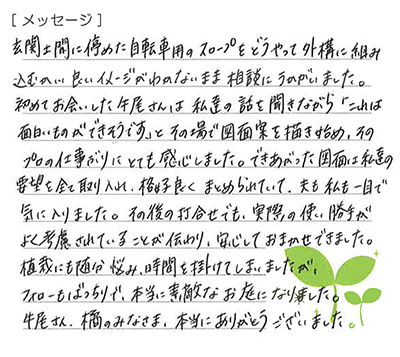 [メッセージ]
玄関土間に停めた自転車用のスロープをどうやって外構に組み
込むのか、良いイメージがわかないまま相談にうかがいました。
初めてお会いした牛尾さんは私達の話を聞きながら「これは
面白いものができそうです」とその場で図面案を描き始め、その
プロの仕事がりにとても感心しました。できあがった図面は私達の
要望を全て取り入れ、格好良くまとめられていて、夫も私も一目で
気に入りました。その後の打合せでも、実際の使い勝手が
よく考慮されていることが伝わり、安心しておまかせできました。
植栽にも随分悩み、時間を掛けてしまいましたが、
フォローもばっちりで、本当に素敵なお庭になりました。
牛尾さん、橘のみなさま、本当にありがとうございました。